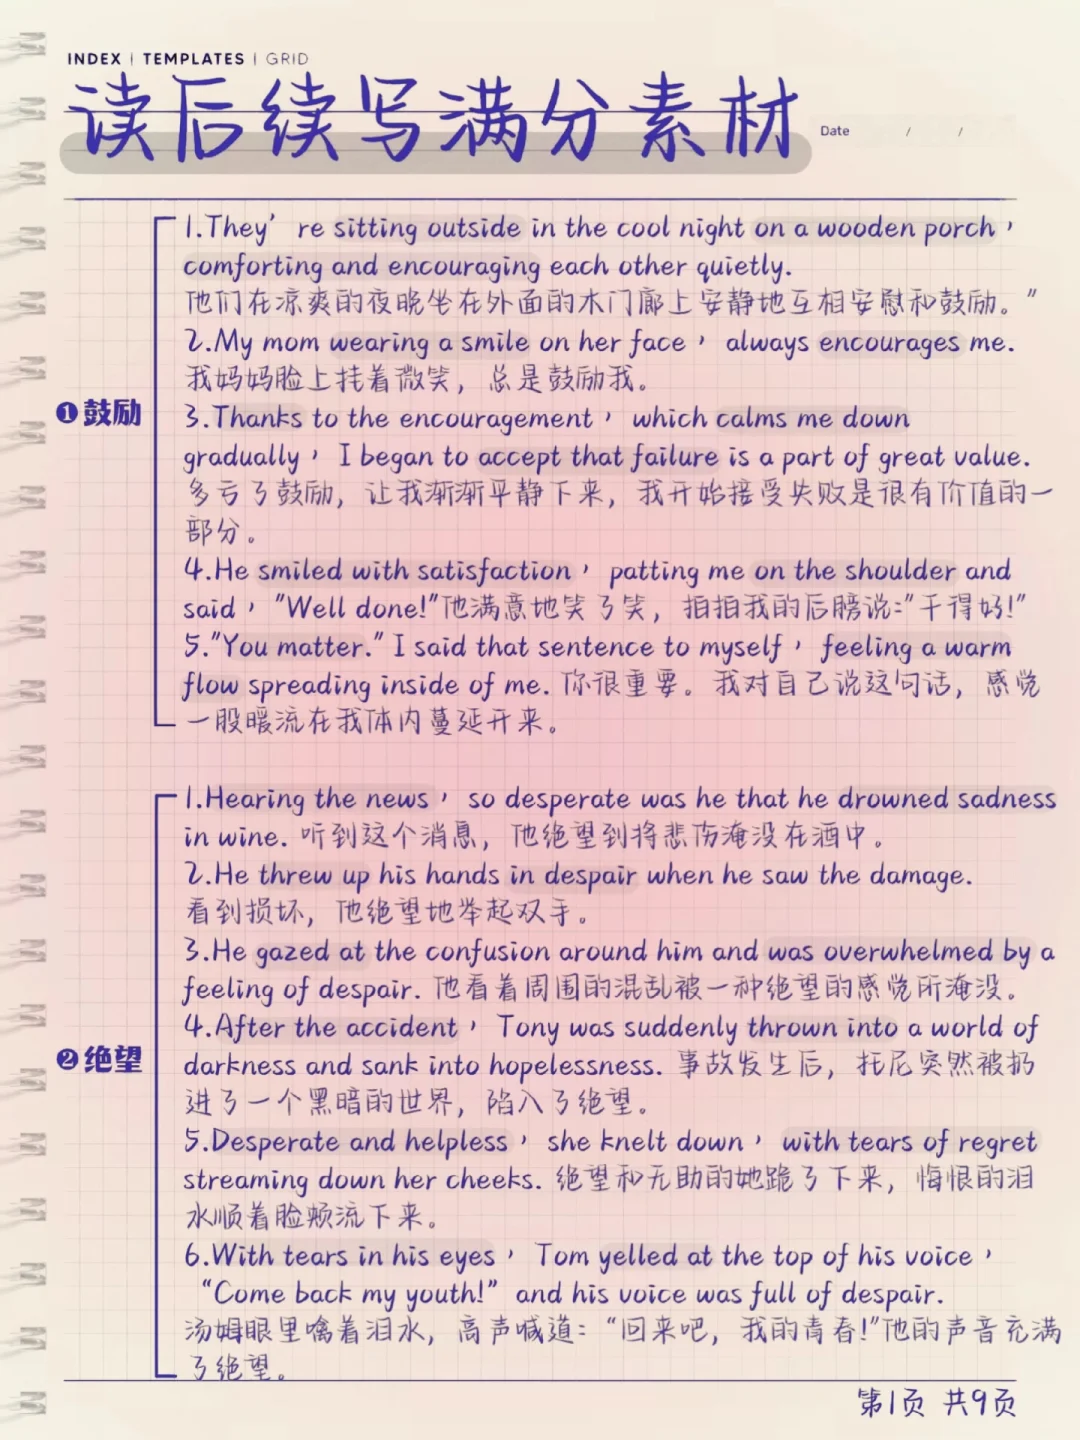 INDEX | TEMPLATES | GRID
读后续写满分素材
Date / /
1.They’ re sitting outside in the cool night on a wooden porch，
comforting and encouraging each other quietly.
他们在凉爽的夜晚坐在外面的木门廊上安静地互相安慰和鼓励。”
2.My mom wearing a smile on her face， always encourages me.
我妈妈脸上挂着微笑，总是鼓励我。
❶鼓励
3.Thanks to the encouragement， which calms me down
gradually， I began to accept that failure is a part of great value.
多亏了鼓励，让我渐渐平静下来，我开始接受失败是很有价值的一
部分。
4.He smiled with satisfaction， patting me on the shoulder and
said，"Well done!"他满意地笑了笑，拍拍我的后膀说:"干得好!"
5."You matter." I said that sentence to myself， feeling a warm
flow spreading inside of me. 你很重要。我对自己说这句话，感觉
一股暖流在我体内蔓延开来。
1.Hearing the news， so desperate was he that he drowned sadness
in wine. 听到这个消息，他绝望到将悲伤淹没在酒中。
2.He threw up his hands in despair when he saw the damage.
看到损坏，他绝望地举起双手。
3.He gazed at the confusion around him and was overwhelmed by a
feeling of despair. 他看着周围的混乱被一种绝望的感觉所淹没。
4.After the accident， Tony was suddenly thrown into a world of
❷绝望
darkness and sank into hopelessness. 事故发生后，托尼突然被扔
进了一个黑暗的世界，陷入了绝望。
5.Desperate and helpless， she knelt down， with tears of regret
streaming down her cheeks. 绝望和无助的她跪了下来，悔恨的泪
水顺着脸颊流下来。
6.With tears in his eyes， Tom yelled at the top of his voice，
“Come back my youth!” and his voice was full of despair.
汤姆眼里噙着泪水，高声喊道：“回来吧，我的青春!"他的声音充满
了绝望。
第1页 共9页